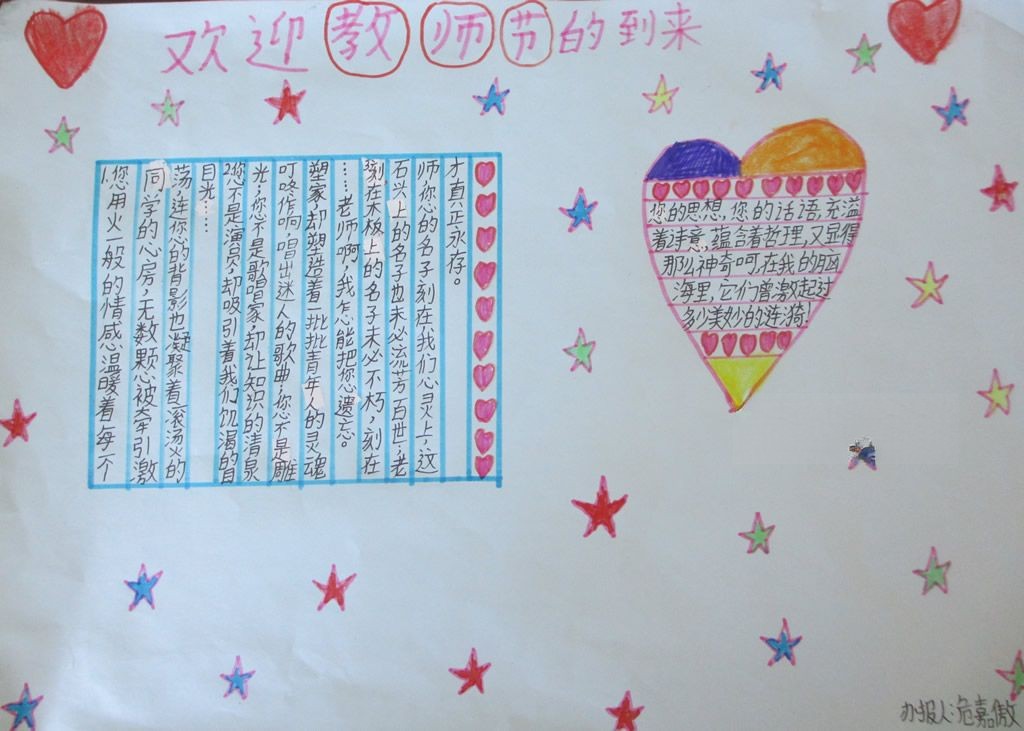 欢迎教师节的到来
1.您用火一般的情感温暖着每一个
同学的心房,无数颗心被牵引激
荡,连您的背影也凝聚着滚汤火的
目光……
2您不是演员,却吸引着我们饥渴的目
光;您不是歌唱家,却让知识的清泉
叮咚作响,唱出迷人的歌曲;您不是雕
塑家,却塑造着一批批青年人的灵魂
……老师啊,我怎能把您遗忘。
刻在木板上的名子未必不朽,刻在
石头上的名子也未必流芳百世;老
师,您的名子刻在我们心灵上,这
才真正永存。
您的思想,您的话语,充溢
着诗意,蕴含着哲理,又显得
那么神奇呵,在我的脑
海里,它们曾激起过
多少美妙的涟漪!
办报人:危嘉傲